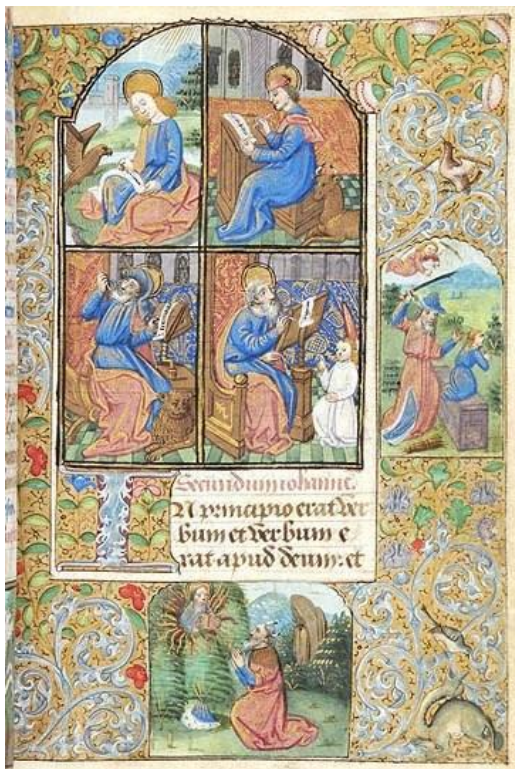 Secundum iohannē.
IN principio erat ver
bum et verbum e
rat apud deum: et